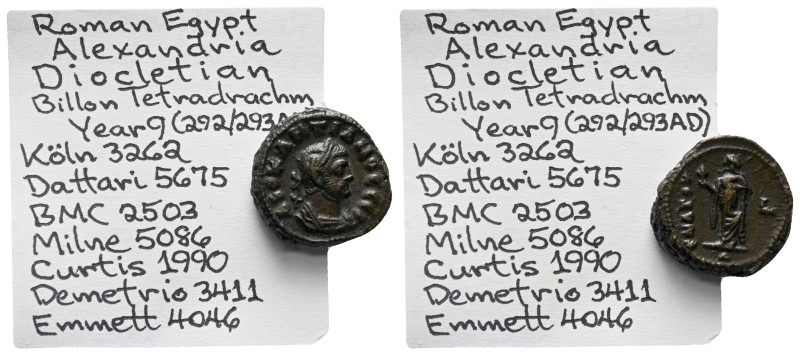 Roman Egypt
Alexandria
Diocletian
Billon Tetradrachm
Year 9 (292/293A
Köln 3262
Dattari 5675
BMC 2503
Milne 5086
Curtis 1990
Demetrio 3411
Emmett 4046
Roman Egypt
Alexandria
Diocletian
Billon Tetradrachm
Year 9 (292/293AD)
Köln 3262
Dattari 5675
BMC 2503
Milne 5086
Curtis 1990
Demetrio 3411
Emmett 4046